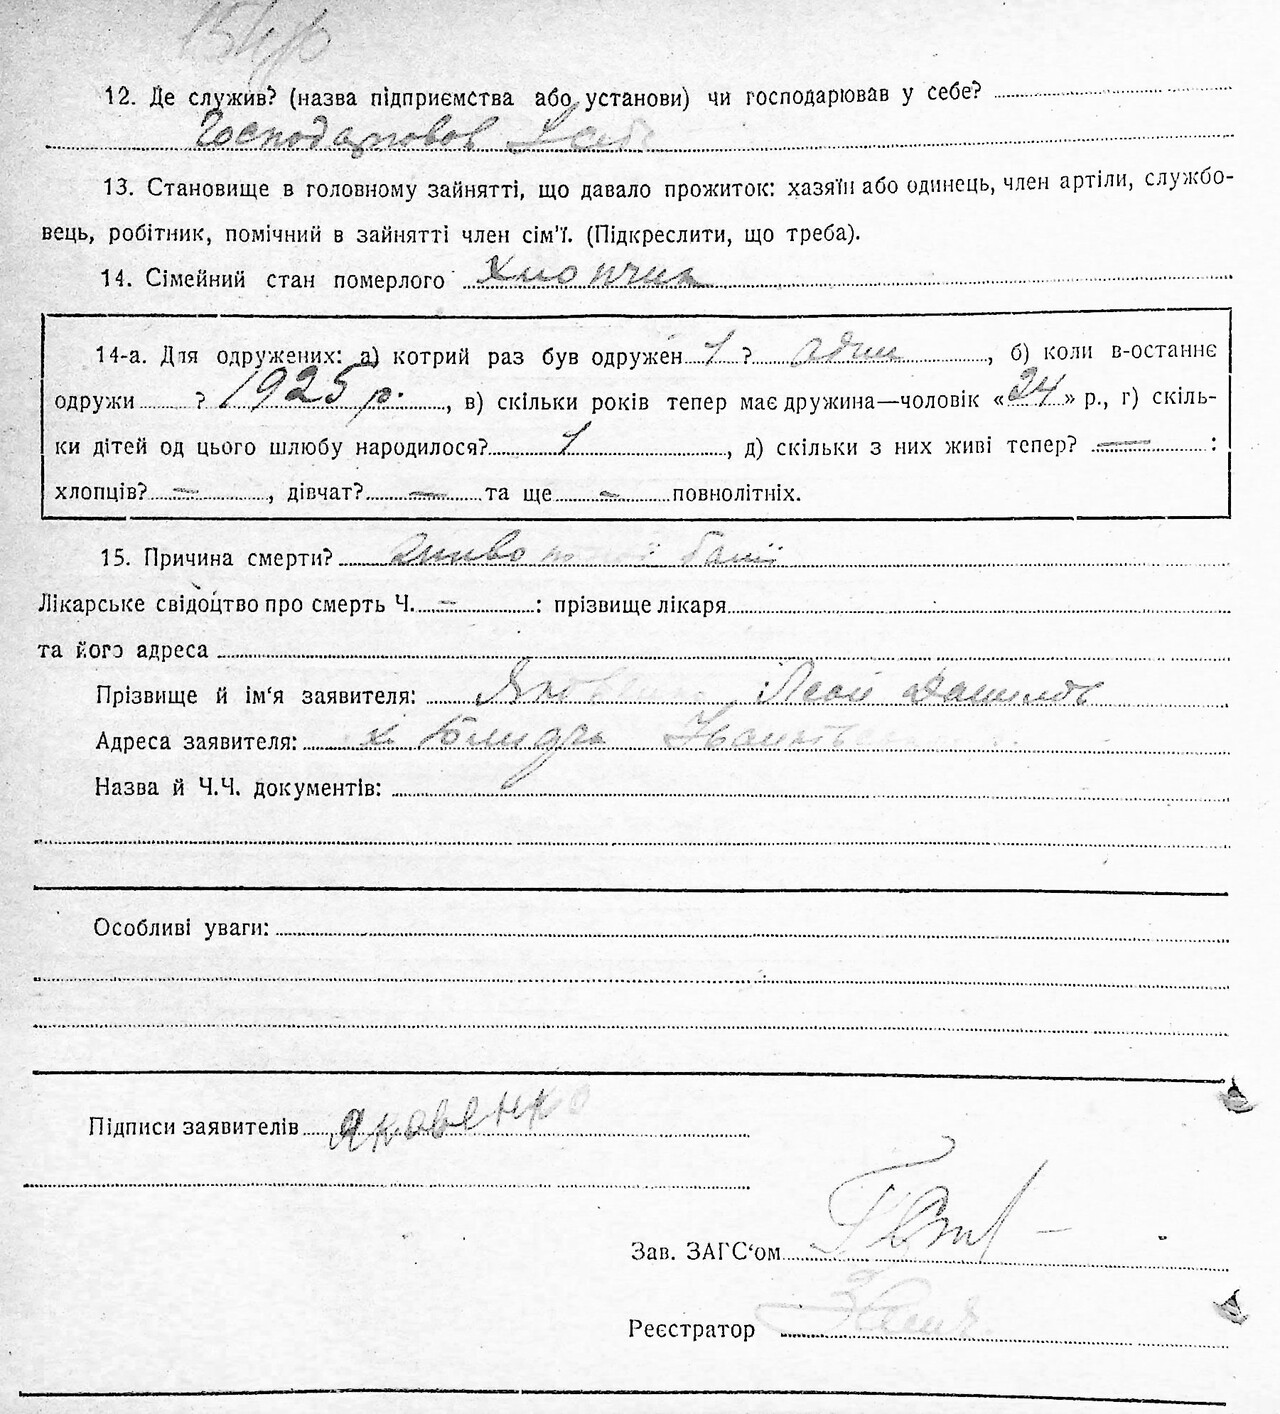 12. Де служив? (назва підприємства або установи) чи господарював у себе?
Господарював
13. Становище в головному зайнятті, що давало прожиток: хазяїн або одинець, член артіли, службо-
вець, робітник, помічний в зайнятті член сім'ї. (Підкреслити, що треба).
14. Сімейний стан померлого Хлопчик
14-а. Для одружених: а) котрий раз був одружен 1 ? один, б) коли в-останнє
одружи ? 1925 р., в) скільки років тепер має дружина—чоловік «24» р., г) скіль-
ки дітей од цього шлюбу народилося? 1, д) скільки з них живі тепер? — :
хлопців? —, дівчат? — та ще — повнолітніх.
15. Причина смерти?
Лікарське свідоцтво про смерть Ч. — : прізвище лікаря
та його адреса
Прізвище й ім'я заявителя:
Адреса заявителя: х.
Назва й Ч.Ч. документів:
Особливі уваги:
Підписи заявителів Яковенко
Зав. ЗАГС'ом
Реєстратор